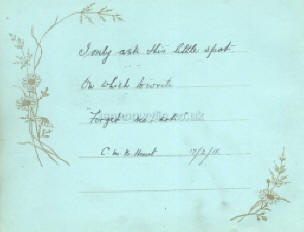 I only ask this little spot
On which to write
"Forget me not"
C. W. H.
17/2/15